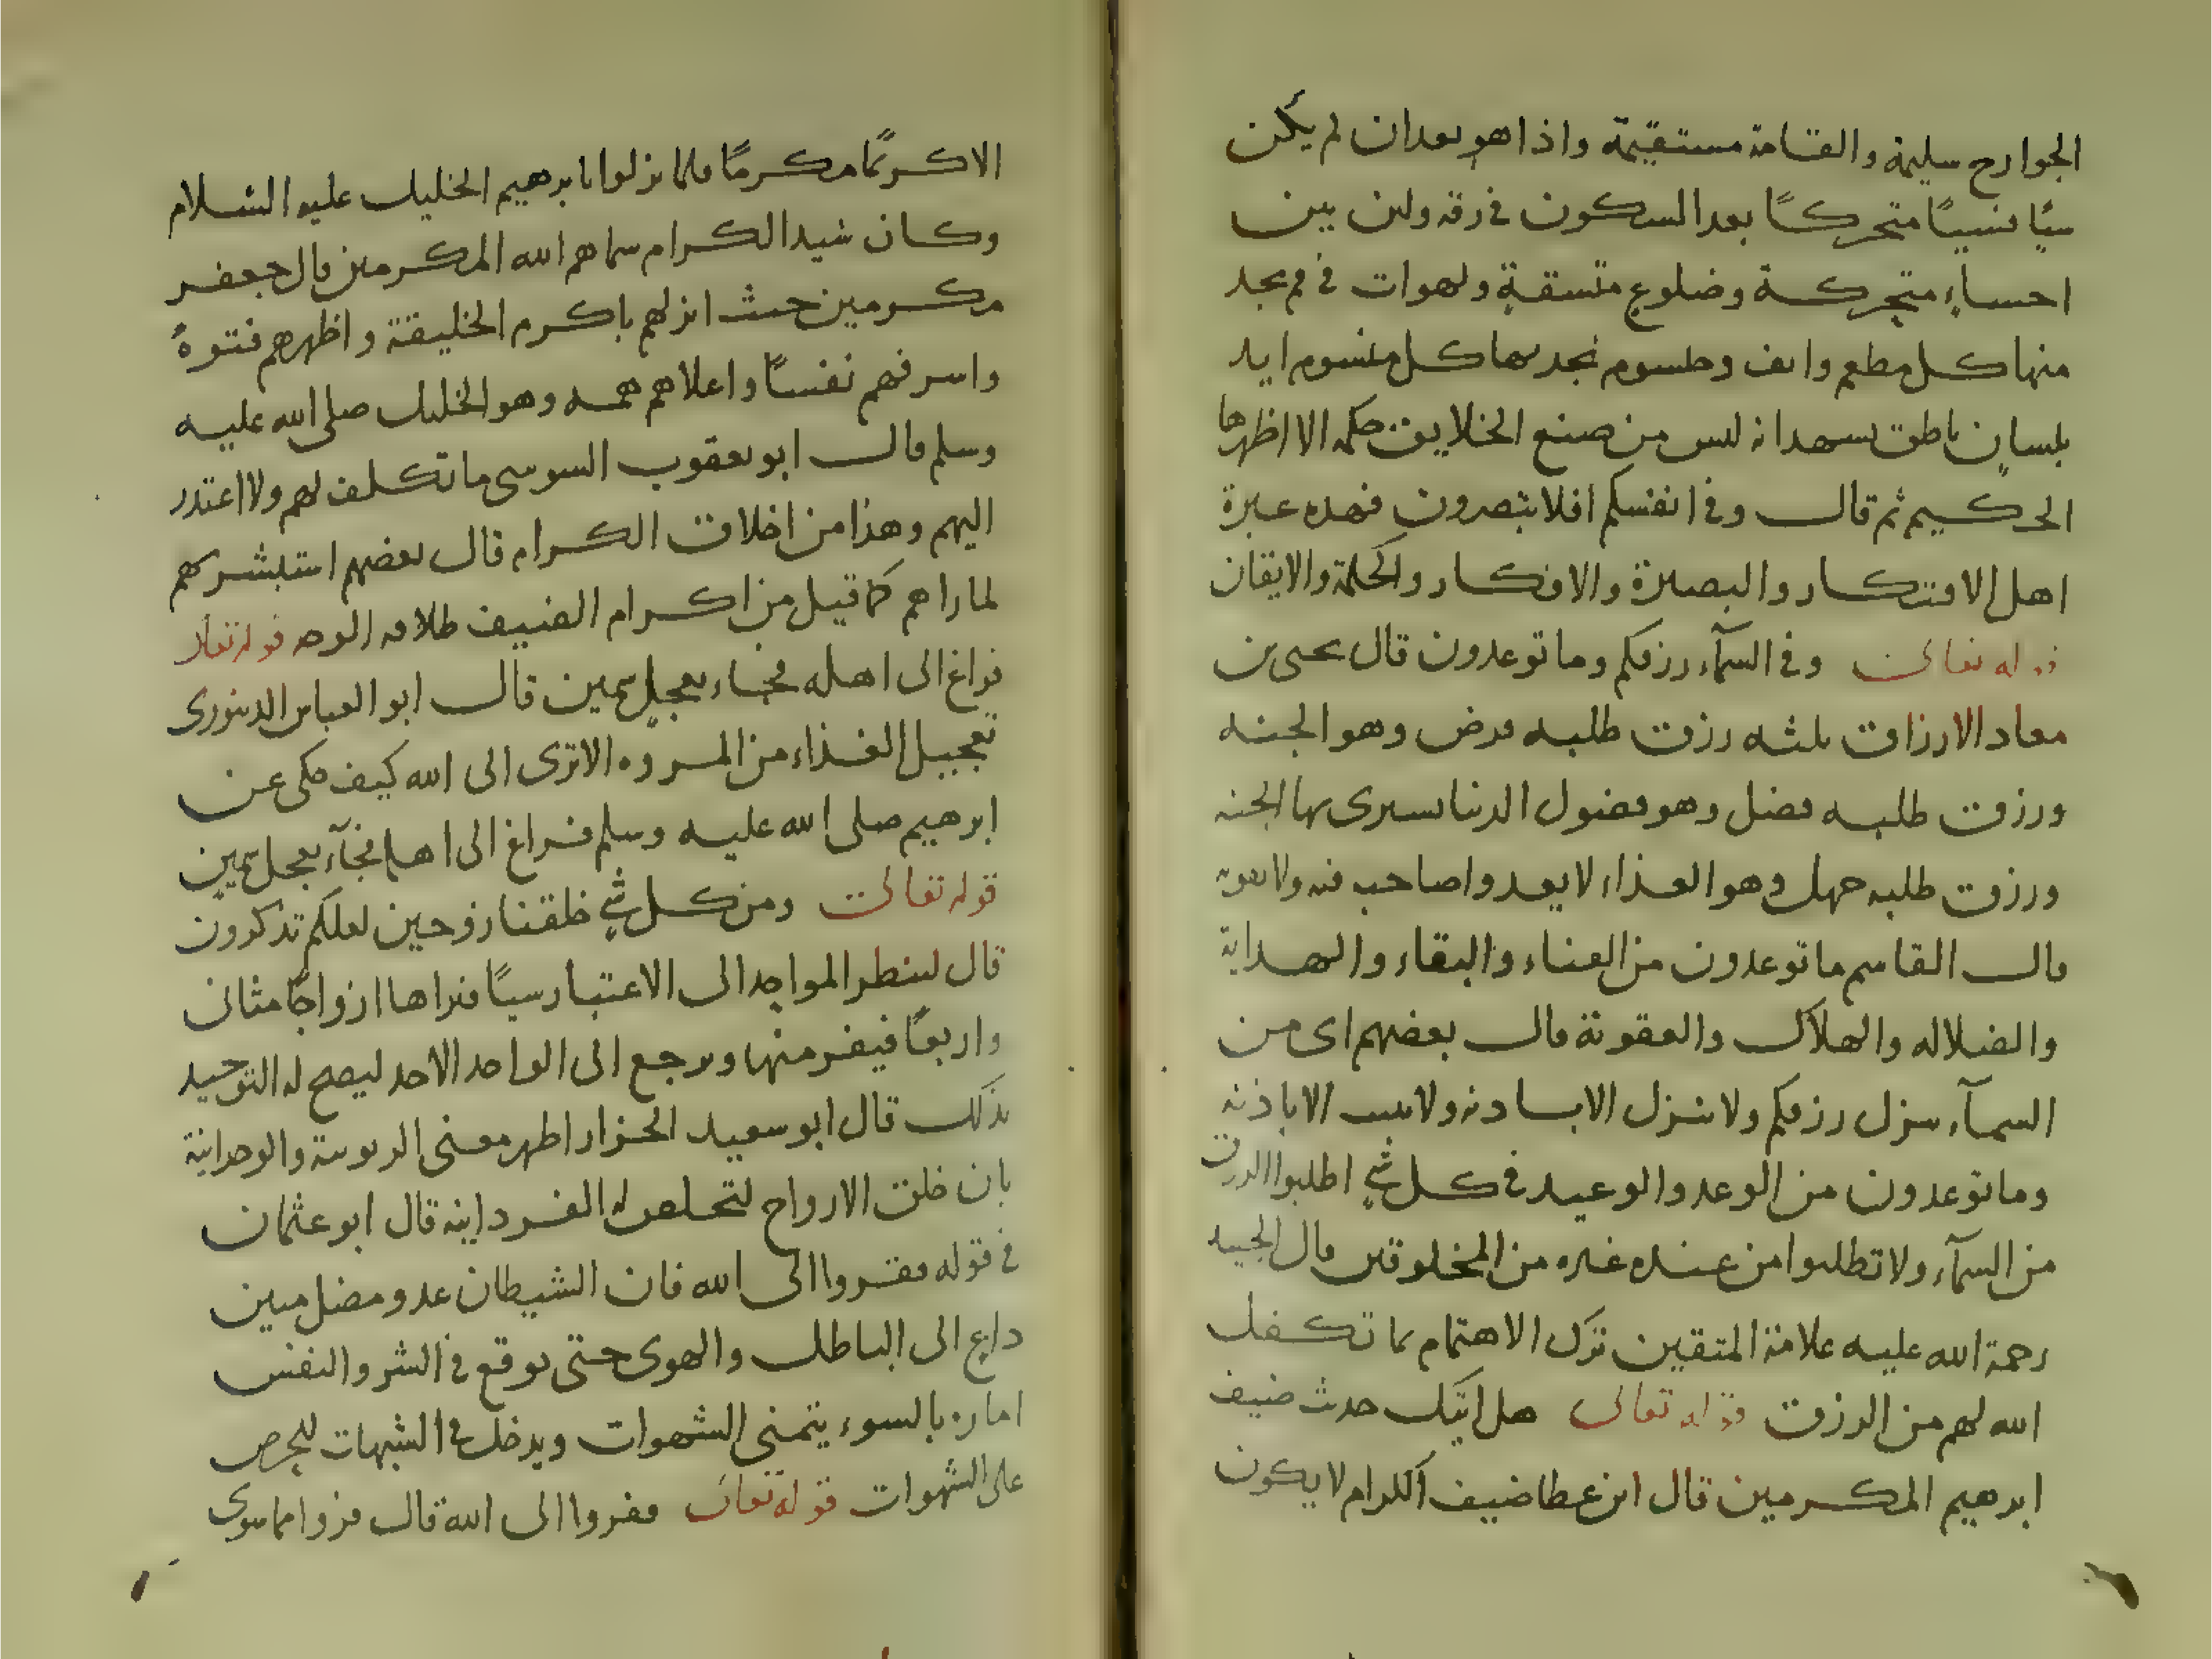 الجوارح سليمة والقامة مستقيمة واذا هو بعد ان لم يكن
شيًا منسيًا متحركًا بعد السكون في رقه ولين بين
احساءٍ متحركة وضلوع متسقةٍ ولهوات في فم يجد
منها كل مطعم وانف وطسوم يجد بها كل منسوم ايد
بلسانٍ ناطق يسهد انه ليس من صنع الخلايق حكمه الا اظهرها
الحكيم ثم قال وفي انفسكم افلا تبصرون فهذه عبرة
اهل الافتكار والبصيرة والافكار والحكمة والايقان
قوله تعالى وفي السمآء رزقكم وما توعدون قال يحيى بن
معاد الارزاق ثلثه رزق طلبه فرض وهو الجنه
ورزق طلبه فضل وهو فضول الدنيا يسرى بها الجنه
ورزق طلبه جهل وهو الغذاء لا يعدوا صاحبه فيه ولا يفوته
قال القاسم ما توعدون من الفناء والبقاء والهداية
والضلاله والهلاك والعقوبة قال بعضهم اى من
السمآء ينزل رزقكم ولا ينزل الا باذنه ولا ينبت الا باذنه
وما توعدون من الوعد والوعيد في كل شيٍ اطلبوا الرزق
من السمآء ولا تطلبوا من عنده غيره من المخلوقين قال الجنيد
رحمة الله عليه علامة المتقين ترك الاهتمام بما تكفل
الله لهم من الرزق قوله تعالى هل اتيك حدث ضيف
ابرهيم المكرمين قال ابن عطا ضيف الكرام لا يكون
الا كريمًا مكرمًا فلما نزلوا بابرهيم الخليل عليه السلام
وكان سيد الكرام سماهم الله المكرمين قال جعفر
مكرمين حيث انزلهم باكرم الخليقة و اظهرهم فتوةً
واسرفهم نفسًا واعلاهم همه وهو الخليل صلى الله عليه
وسلم قال ابو يعقوب السوسى ما تكلف لهم ولا اعتدر
اليهم وهذا من اخلاق الكرام قال بعضهم استبشرهم
لما راهم كما قيل من اكرام الضيف طلاقه الوجه قوله تعالى
فراغ الى اهله فجاء بعجلٍ سمين قال ابو العباس الدينورى
تعجيل الغذاء من المروه الا ترى الى الله كيف حكى عن
ابرهيم صلى الله عليه وسلم فراغ الى اهله فجآء بعجل سمينٍ
قوله تعالى ومن كل شيٍ خلقنا زوجين لعلكم تذكرون
قال لينظر المواجد الى الاعتبار سيًا فيراها ازواجًا مثانى
واربعًا فيفر منها ويرجع الى الواحد الاحد ليصح له التوحيد
بذلك قال ابو سعيد الخزار اظهر معنى الربوبية والوحدانية
بان خلق الارواح لتخلص له الفردانيه قال ابو عثمان
في قوله ففروا الى الله فان الشيطان عدو مضل مبين
داعٍ الى الباطل والهوى حتى يوقع في الشر والنفس
اماره بالسوء يتمنى الشهوات ويدخل في الشبهات للحرص
على الشهوات قوله تعالى ففروا الى الله قال فروا مما سوى